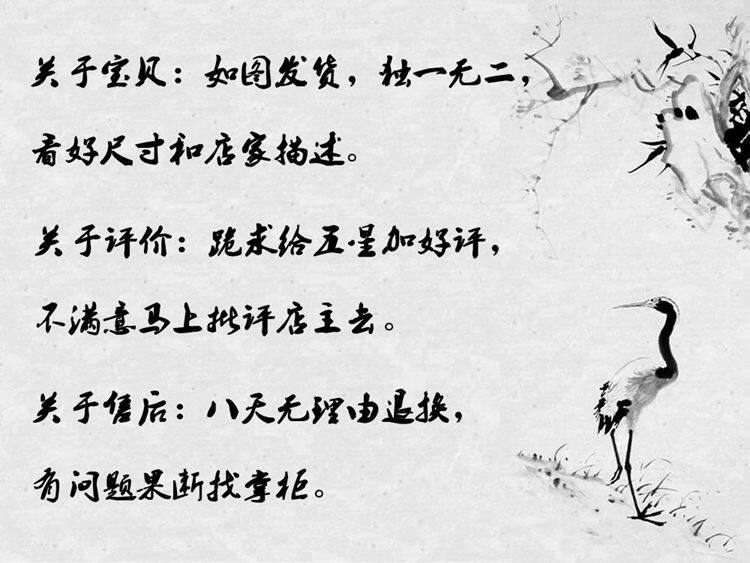 关于宝贝：如图发货，独一无二，
看好尺寸和店家描述。
关于评价：跪求给五星加好评，
不满意马上批评店主去。
关于售后：八天无理由退换，
有问题果断找掌柜。